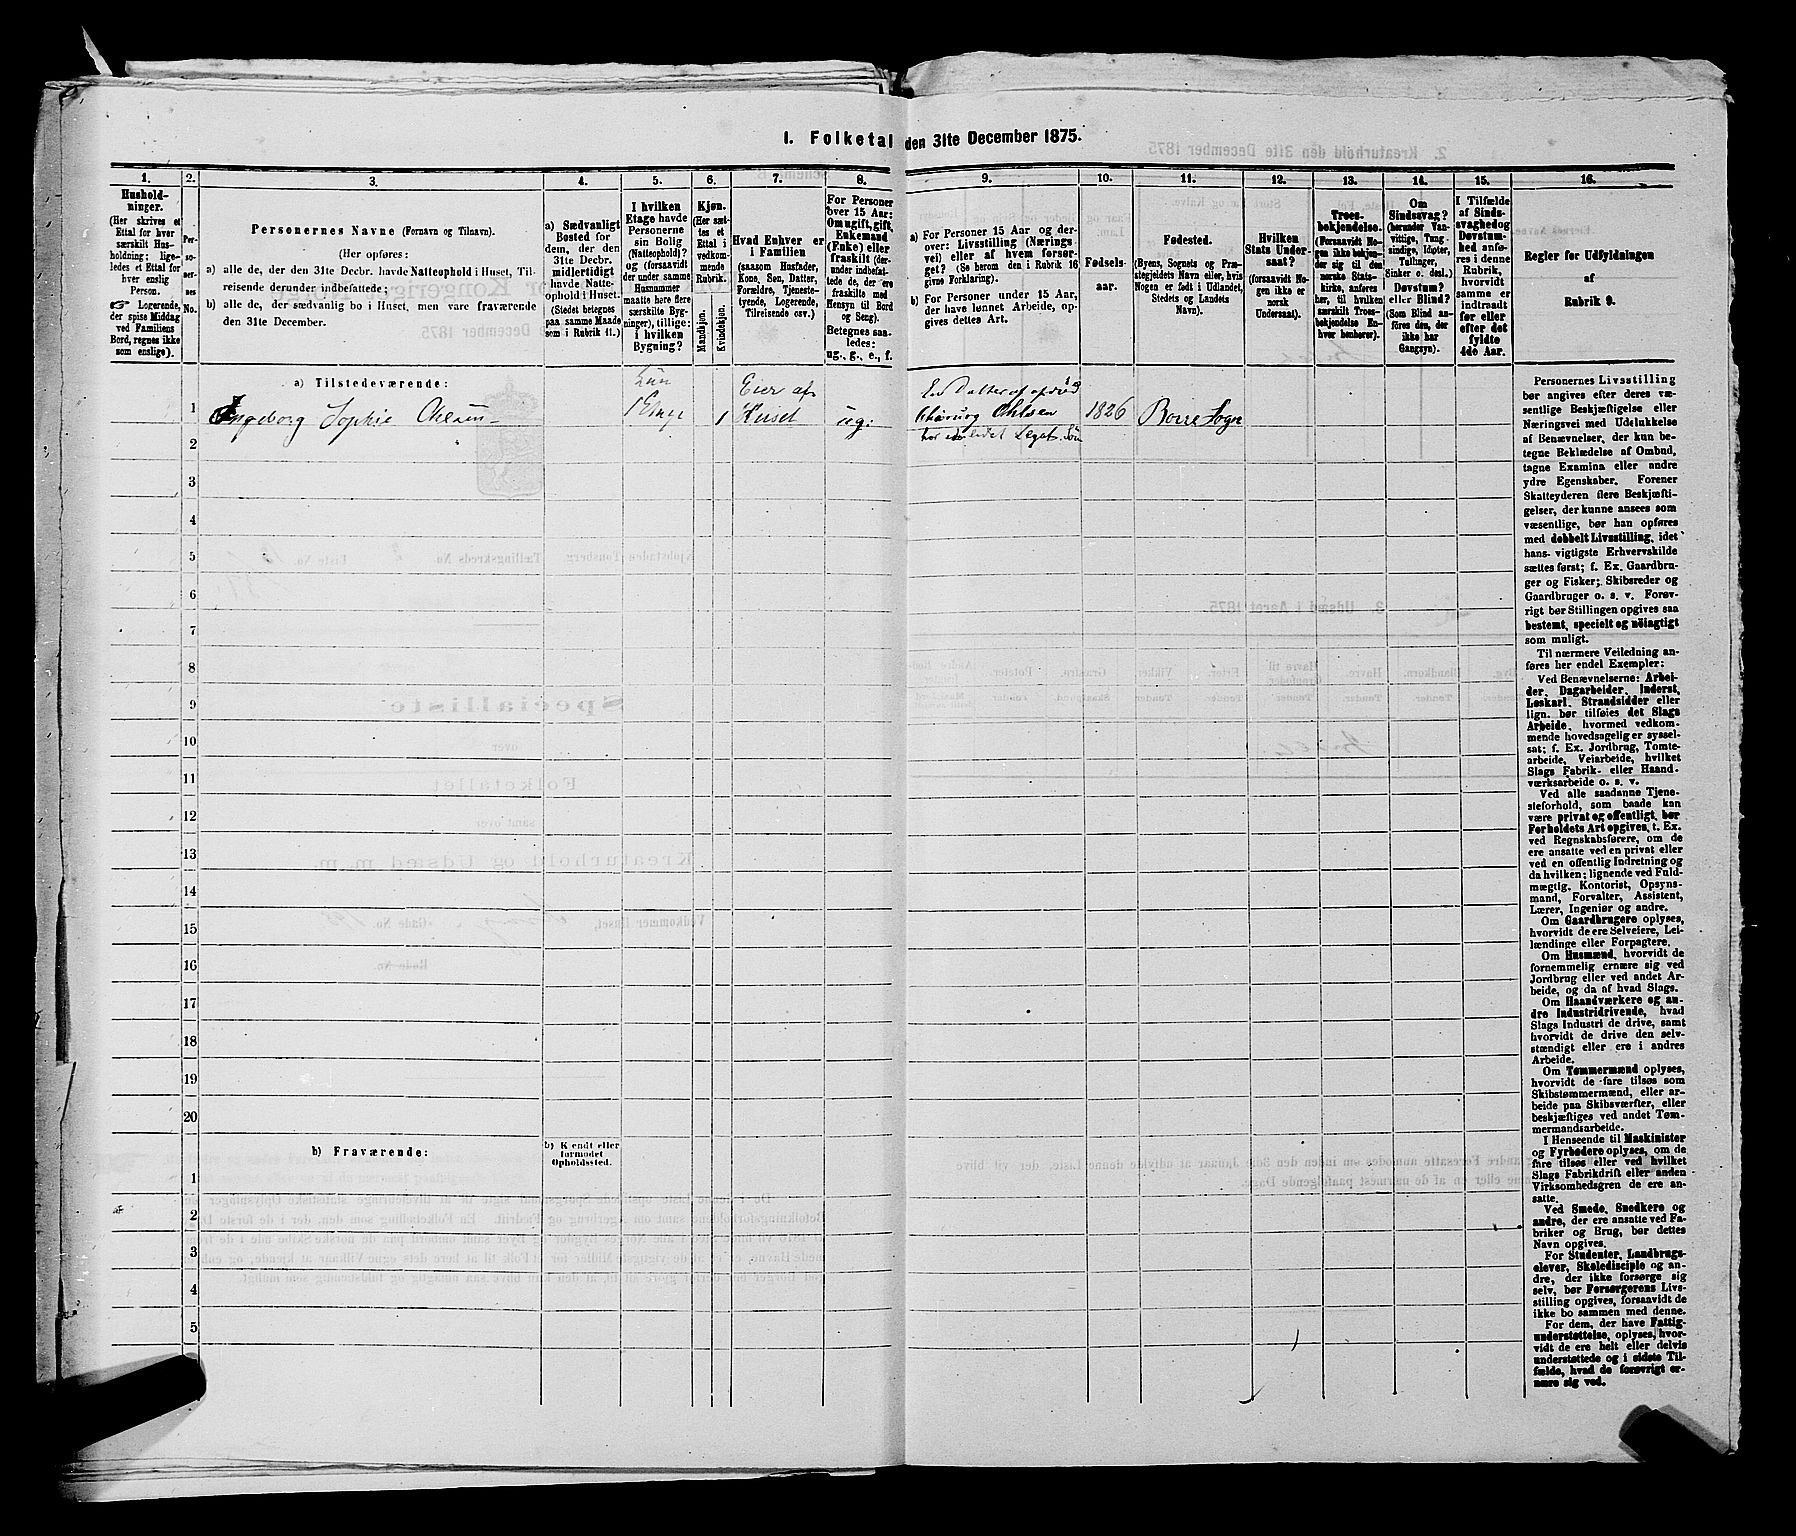 1. Folketal den 31te December 1875.
1.
2.
3.
4.
5.
6.
7.
8.
9.
10.
11.
12.
13.
14.
15.
16.
Hushold-
ninger.
(Her skrives et
Ettal for hver
særskilt Hus-
holdning; lige-
ledes et Ettal for
hver enslig
Person.
☞ Logerende,
der spise Middag
ved Familiens
Bord, regnes ikke
som enslige).
Per-
so-
ner-
nes
No.
Personernes Navne (Fornavn og Tilnavn).
(Her opføres:
a) alle de, der den 31te Decbr. havde Natteophold i Huset, Til-
reisende derunder indbefattede;
b) alle de, der sædvanlig bo i Huset, men vare fraværende
den 31te December.
a) Sædvanligt
Bosted for
dem, der den
31te Decbr.
midlertidigt
havde Natte-
ophold i Huset.
(Stedet betegnes
paa samme Maade
som i Rubrik 11.)
I hvilken
Etage havde
Personerne
sin Bolig
(Natteophold)?
og (forsaavidt
der under samme
Husnummer
maatte høre flere
særskilte Byg-
ninger), tillige:
i hvilken
Bygning?
Kjøn.
(Her sæt-
tes et
Ettal i
vedkom-
mende
Rubrik.
Mandkjøn.
Kvindekjøn.
Hvad Enhver er
i Familien
(saasom Husfader,
Kone, Søn, Datter,
Forældre, Tjeneste-
tyende, Logerende,
Tilreisende osv.)
For Personer
over 15 Aar:
Om ugift, gift,
Enkemand
(Enke) eller
fraskilt (der-
under indbefat-
tede de, der ere
fraskilte med
Hensyn til Bord
og Seng).
Betegnes saa-
ledes:
ug., g., e., f.
a) For Personer 15 Aar og der-
over: Livsstilling (Nærings-
vei) eller af hvem forsør-
get? (Se herom den i Rubrik 16
givne Forklaring).
b) For Personer under 15 Aar,
der have lønnet Arbeide, op-
gives dettes Art.
Fødsels-
aar.
Fødested.
(Byens, Sognets og Præ-
stegjeldets Navn eller, hvis
Nogen er født i Udlandet,
Stedets og Landets
Navn).
Hvilken
Stats Under-
saat?
(forsaavidt No-
gen ikke er
norsk
Undersaat).
Troes-
bekjendelse.
(Forsaavidt No-
gen ikke bekjen-
der sig til den
norske Stats-
kirke, anføres
her, til hvilken
særskilt Troes-
bekjendelse En-
hver henhører).
Om
Sindssvag?
(herunder Van-
vittige, Tung-
sindige, Idioter,
Tullinger,
Sinker o. desl.)
Døvstum?
eller Blind?
(Som Blind an-
føres den, der
ikke har
Gangsyn).
I Tilfælde
af Sinds-
svaghed og
Døvstum-
hed anfø-
res i denne
Rubrik,
hvorvidt
samme er
indtraadt
før eller
efter det
fyldte
4de Aar.
Regler for Udfyldningen
af
Rubrik 9.
a) Tilstedeværende:
1 Ingeborg Sophie
1
Eier af
Huset
ug:
En Datter af
Ohlsen
1826
Borre Sogn
2
3
4
5
6
7
8
9
10
11
12
13
14
15
16
17
18
19
20
b) Fraværende:
b) Kjendt eller
formodet
Opholdssted.
1
2
3
4
5
Personernes Livsstilling
bør angives efter deres væ-
sentlige Beskjæftigelse eller
Næringsvei med Udelukkelse
af Benævnelser, der kun be-
tegne Beklædelse af Ombud,
tagne Examina eller andre
ydre Egenskaber. Forener
Skatteyderen flere Beskjæfti-
gelser, der kunne ansees som
væsentlige, bør han opføres
med dobbelt Livsstilling, idet
hans vigtigste Erhvervskilde
sættes først; f. Ex. Gaardbru-
ger og Fisker; Skibsreder og
Gaardbruger o. s. v. Forøv-
rigt bør Stillingen opgives saa
bestemt, specielt og nøiagtigt
som muligt.
Til nærmere Veiledning an-
føres her endel Exempler:
Ved Benævnelserne: Arbei-
der, Dagarbeider, Inderst,
Løskarl, Strandsidder eller
lign. bør tilføies det Slags
Arbeide, hvormed vedkom-
mende hovedsagelig er syssel-
sat; f. Ex. Jordbrug, Tomte-
arbeide, Veiarbeide, hvilket
Slags Fabrik- eller Haand-
værksarbeide o. s. v.
Ved alle saadanne Tjene-
steforhold, som baade kan
være privat og offentligt, bør
Forholdets Art opgives, t. Ex.
ved Regnskabsførere, om de
ere ansatte ved en privat eller
ved en offentlig Indretning og
da hvilken; lignende ved Fuld-
mægtig, Kontorist, Opsyns-
mand, Forvalter, Assistent,
Lærer, Ingeniør og andre.
Om Gaardbrugere oplyses,
hvorvidt de ere Selveiere, Lei-
lændinge eller Forpagtere.
Om Husmænd, hvorvidt de
fornemmelig ernære sig ved
Jordbrug eller ved andet Ar-
beide, og da af hvad Slags.
Om Haandværkere og an-
dre Industridrivende, hvad
Slags Industri de drive, samt
hvorvidt de drive den selv-
stændigt eller ere i andres
Arbeide.
Om Tømmermænd oplyses,
hvorvidt de fare tilsøs som
Skibstømmermænd, eller ar-
beide paa Skibsværfter, eller
beskjæftiges ved andet Tøm-
mermandsarbeide.
I Henseende til Maskinister
og Fyrbødere oplyses, om de
fare tilsøs eller ved hvilket
Slags Fabrikdrift eller anden
Virksomhedsgren de ere an-
satte.
Ved Smede, Snedkere og
andre, der ere ansatte ved Fa-
briker og Brug, bør dettes
Navn opgives.
For Studenter, Landbrugs-
elever, Skoledisciple og an-
dre, der ikke forsørge sig
selv, bør Forsørgerens Livs-
stilling opgives, forsaavidt de
ikke bo sammen med denne.
For dem, der have Fattig-
understøttelse, oplyses, hvor-
vidt de ere helt eller delvis
understøttede og i sidste Til-
fælde, hvad de forøvrigt er-
nære sig ved.